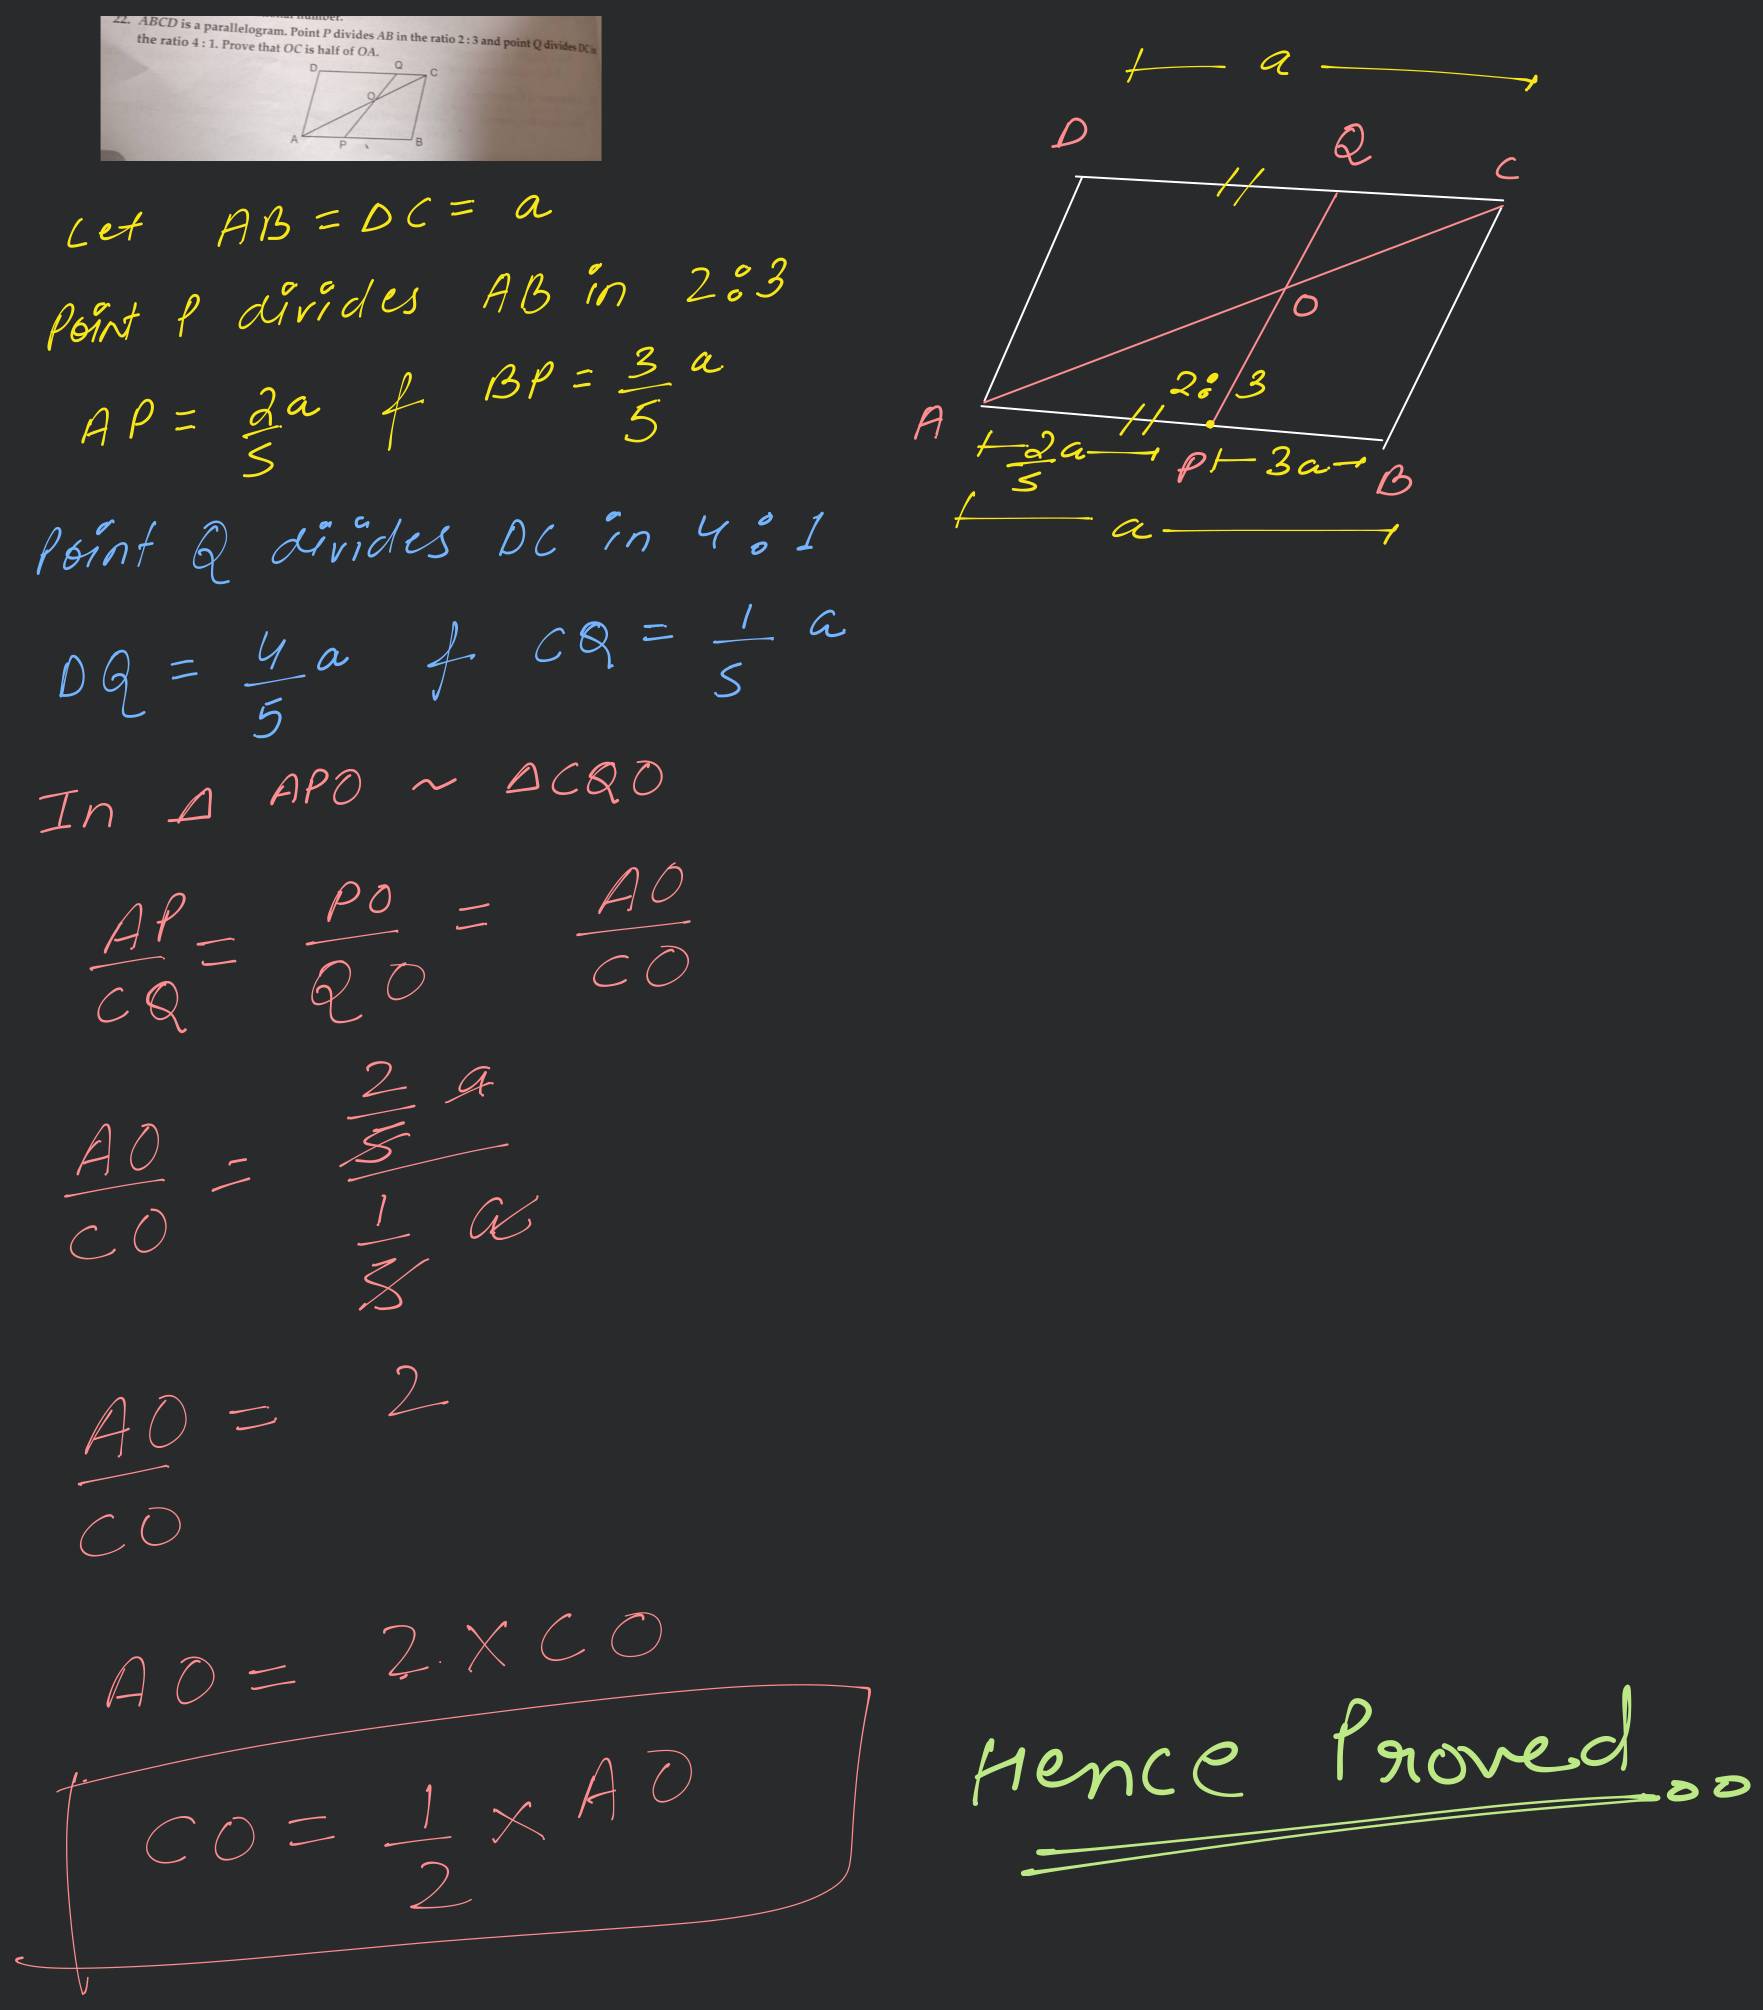 22. ABCD is a parallelogram. Point P divides AB in the ratio 2 : 3 and point Q divides DC in
the ratio 4 : 1. Prove that OC is half of OA.
D Q C
O
A P B
a
D Q C
O
2:3
A P B
2/5 a 3a
a
Let AB = DC = a
Point P divides AB in 2:3
AP = 2/5 a & BP = 3/5 a
Point Q divides DC in 4:1
DQ = 4/5 a & CQ = 1/5 a
In Δ APO ~ ΔCQO
AP/CQ = PO/QO = AO/CO
AO/CO = (2/5 a)/(1/5 a)
AO/CO = 2
AO = 2 × CO
CO = 1/2 × AO
Hence Proved...